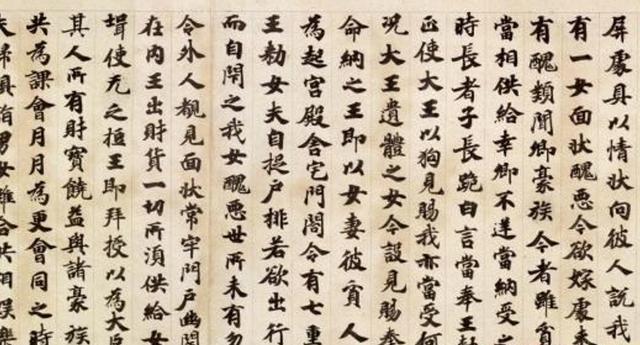 屏處具以情狀向彼人說我
有一女面狀醜惡今欲嫁處未
有醜類聞卿豪族今者雖貧
當相供給幸卿不逆當納受之
時長者子長跪白言當奉王勅
正使大王以狗見賜我亦當受何
况大王遺體之女今設見賜奉
命納之王即以女妻彼貧人
為起宮殿舍宅門閤令有七重
王勅女夫自捉戶排若欲出行
而自閇之我女醜惡世所未有勿
令外人覩見面狀常牢門戶幽閇
在內王出財貨一切所須供給女
壻使无乏短王即拜授以為大臣
其人所有財寶饒益與諸豪族
共為課會月月為更會同之時
夫婦俱詣男女雜合共相娛樂